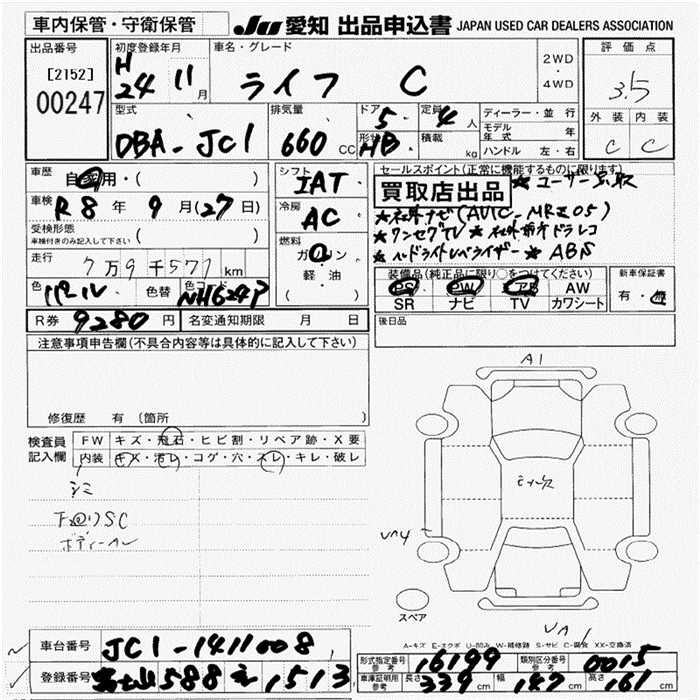 車内保管・守衛保管 JU 愛知 出品申込書 JAPAN USED CAR DEALERS ASSOCIATION
出品番号 初度登録年月 車名・グレード 2WD・4WD 評価点
[2152] H 24 11月 ライフ C 3.5
00247
型式 排気量 ドア 定員 ディーラー・並行 外装 内装
DBA-JC1 660CC 5 4人 モデル年式 年 C C
形状 HB 積載 kg ハンドル 左・右
車歴 自家用・( ) シフト セールスポイント(正常に機能するものに限ります)
IAT 買取店出品 ★ユーザー買取
車検 R8年9月(27日) 冷房 AC ★社外ナビ(AVIC-MRZ05)
受検形態 ★ワンセグTV ★社外前ドラレコ
車検付きのみ記入して下さい( ) 燃料 ガソリン ★ヘッドライトレベライザー ★ABS
走行 7万9千577km 軽・油 装備品(純正品に限り○をつけてください) 新車保証書
色 パール 色替 色コード NH624P ( ) PS PW AB AW 有・無
SR ナビ TV カワシート
R券 9280円 名変通知期限 月 日 後日品
注意事項申告欄(不具合内容等は具体的に記入して下さい)
A1
修復歴 有(箇所 )
検査員記入欄 FW キズ・飛石・ヒビ割・リペア跡・X要
内装 キズ・汚レ・コゲ・穴・スレ・キレ・破レ
シミ
SC
スペア
A-キズ E-エクボ U-凹み W-補修跡 S-サビ C-腐食 XX-交換済
車台番号 JC1-1411008 形式指定番号 参考 16199 類別区分番号 参考 0015
登録番号 富士山588 1513 車庫証明用 参考 長さ 339cm 幅 147cm 高さ 161cm